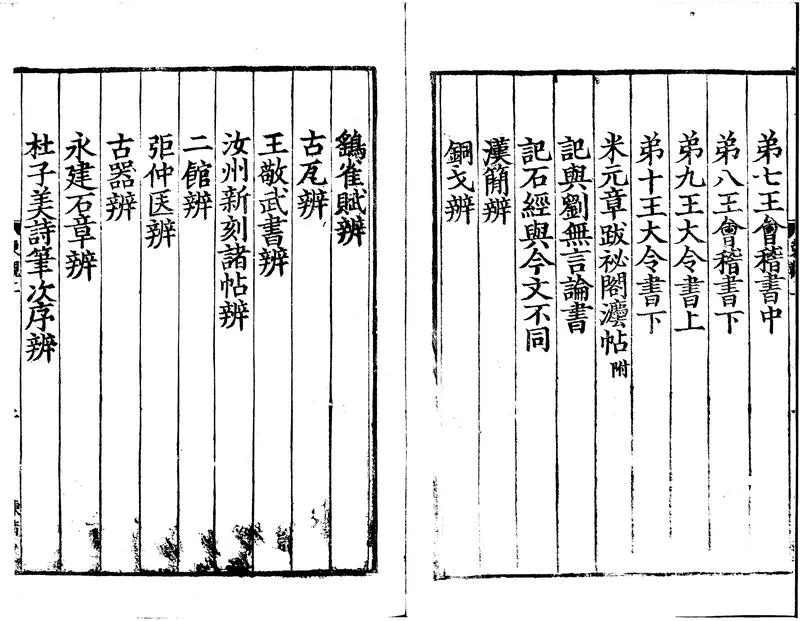 弟七王會稽書中
弟八王會稽書下
弟九王大令書上
弟十王大令書下
米元章跋祕閣灋帖附
記與劉無言論書
記石經與今文不同
漢簡辨
銅戈辨
鷂雀賦辨
古瓦辨
王敬武書辨
汝州新刻諸帖辨
二館辨
弡仲医辨
古器辨
永建石章辨
杜子美詩筆次序辨